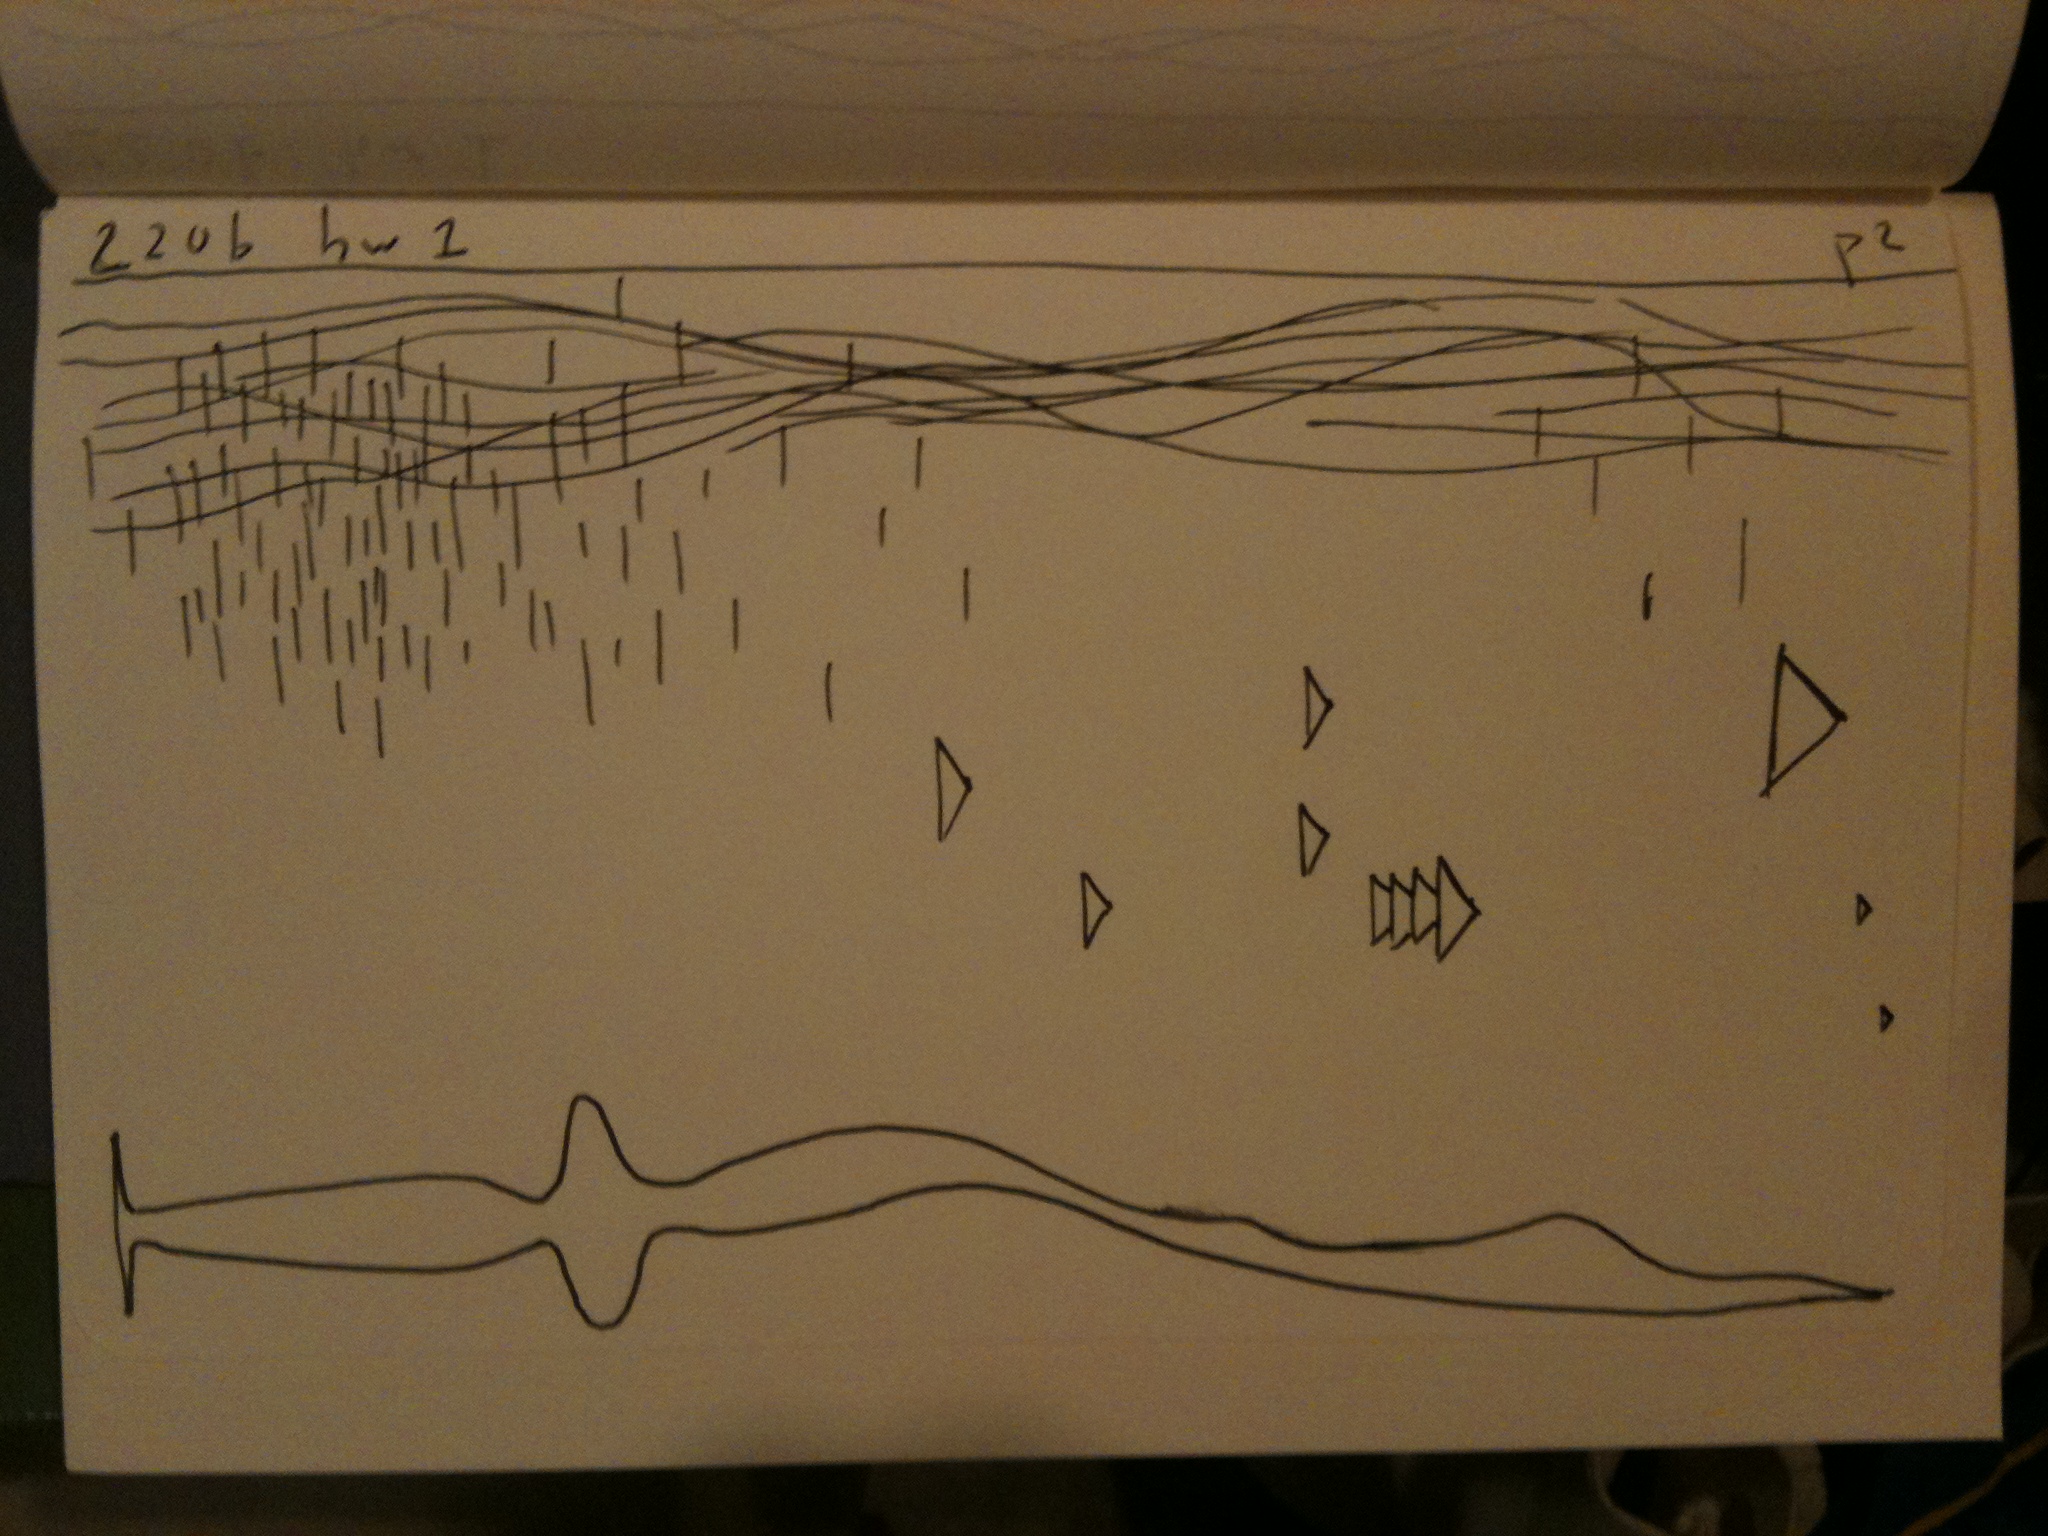 220b hw 1
p2